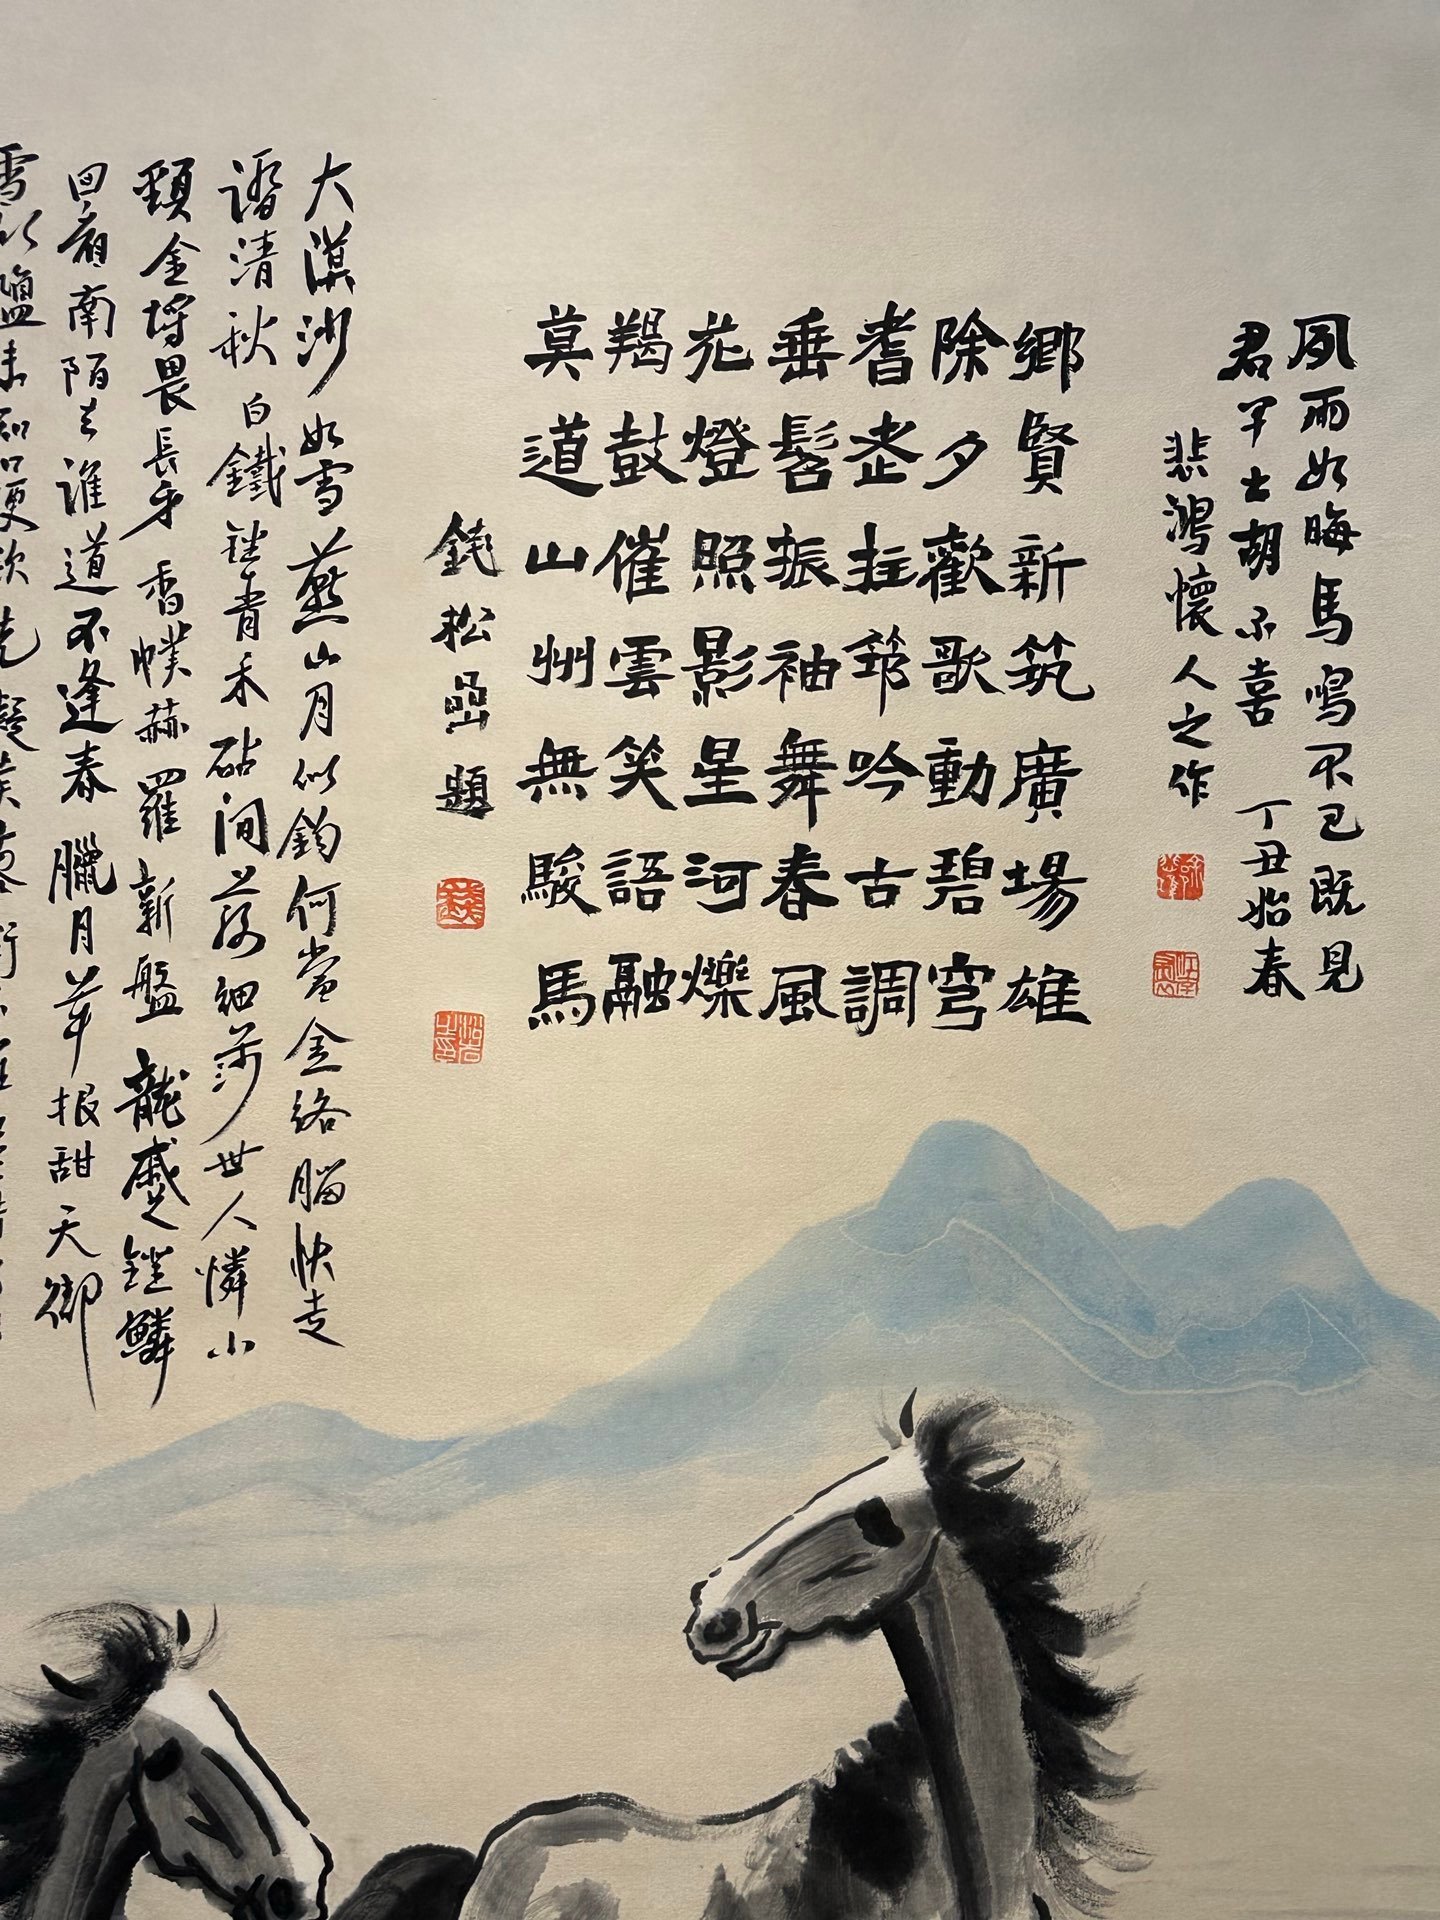 風雨如晦馬鳴不已既見
君子云胡不喜 丁丑始春
悲鴻懷人之作
鄉賢新筑廣場雄
除夕歡歌動碧穹
耆耋拄筇吟古調
垂髫振袖舞春風
花燈照影星河爍
羯鼓催雲笑語融
莫道山州無駿馬
錢松嵒題
大漠沙如雪燕山月似鈎何當金絡腦快走
踏清秋 白鐵銼青禾砧間落細莎世人憐小
頸金埒畏長牙 香幞赫羅新盤龍蹙鐙鱗
回看南陌上誰道不逢春 臘月草根甜天街
雪似鹽未知口硬軟先擬蒺藜銜